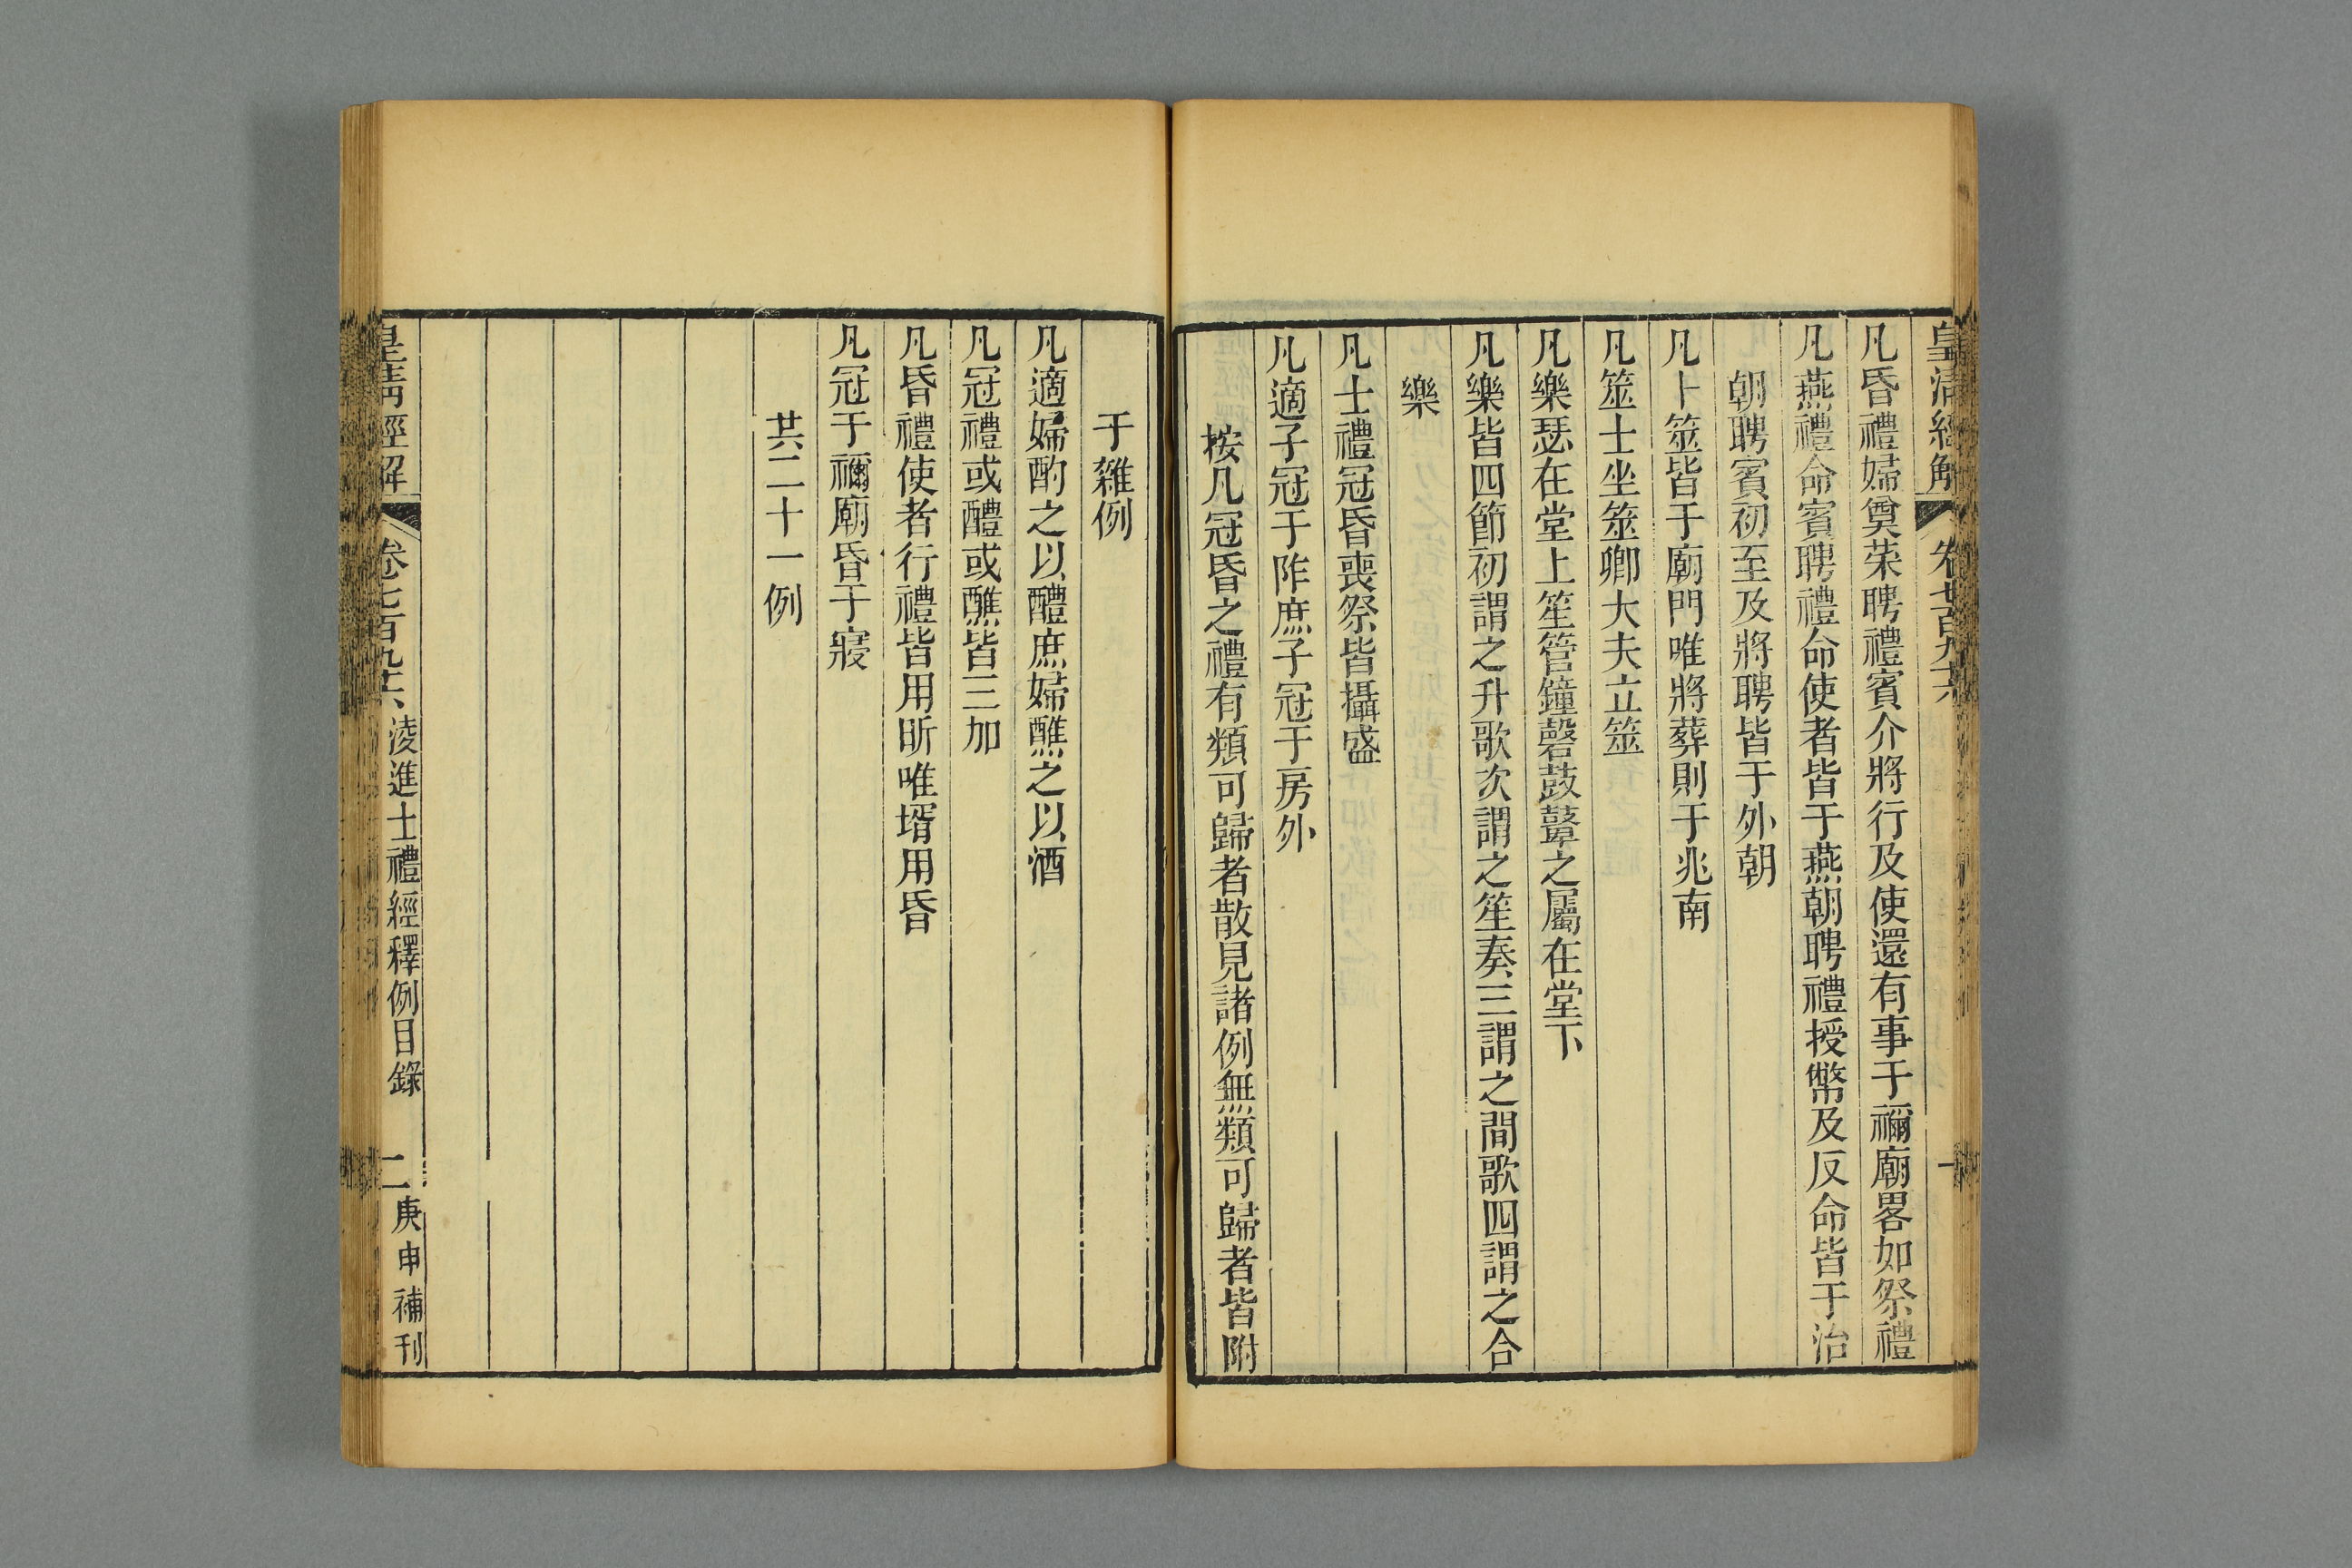 皇清經解 卷七百九十六 一
凡昏禮婦奠菜聘禮賓介將行及使還有事于禰廟畧如祭禮
凡燕禮命賓聘禮命使者皆于燕朝聘禮授幣及反命皆于治
朝聘賓初至及將聘皆于外朝
凡卜筮皆于廟門唯將葬則于兆南
凡筮士坐筮卿大夫立筮
凡樂瑟在堂上笙管鐘磬鼓鼙之屬在堂下
凡樂皆四節初謂之升歌次謂之笙奏三謂之間歌四謂之合
樂
凡士禮冠昏喪祭皆攝盛
凡適子冠于阼庶子冠于房外
按凡冠昏之禮有類可歸者散見諸例無類可歸者皆附
于雜例
凡適婦酌之以醴庶婦醮之以酒
凡冠禮或醴或醮皆三加
凡昏禮使者行禮皆用昕唯壻用昏
凡冠于禰廟昏于寢
共二十一例
皇清經解 卷七百九十六 淩進士禮經釋例目錄 二 庚申補刊